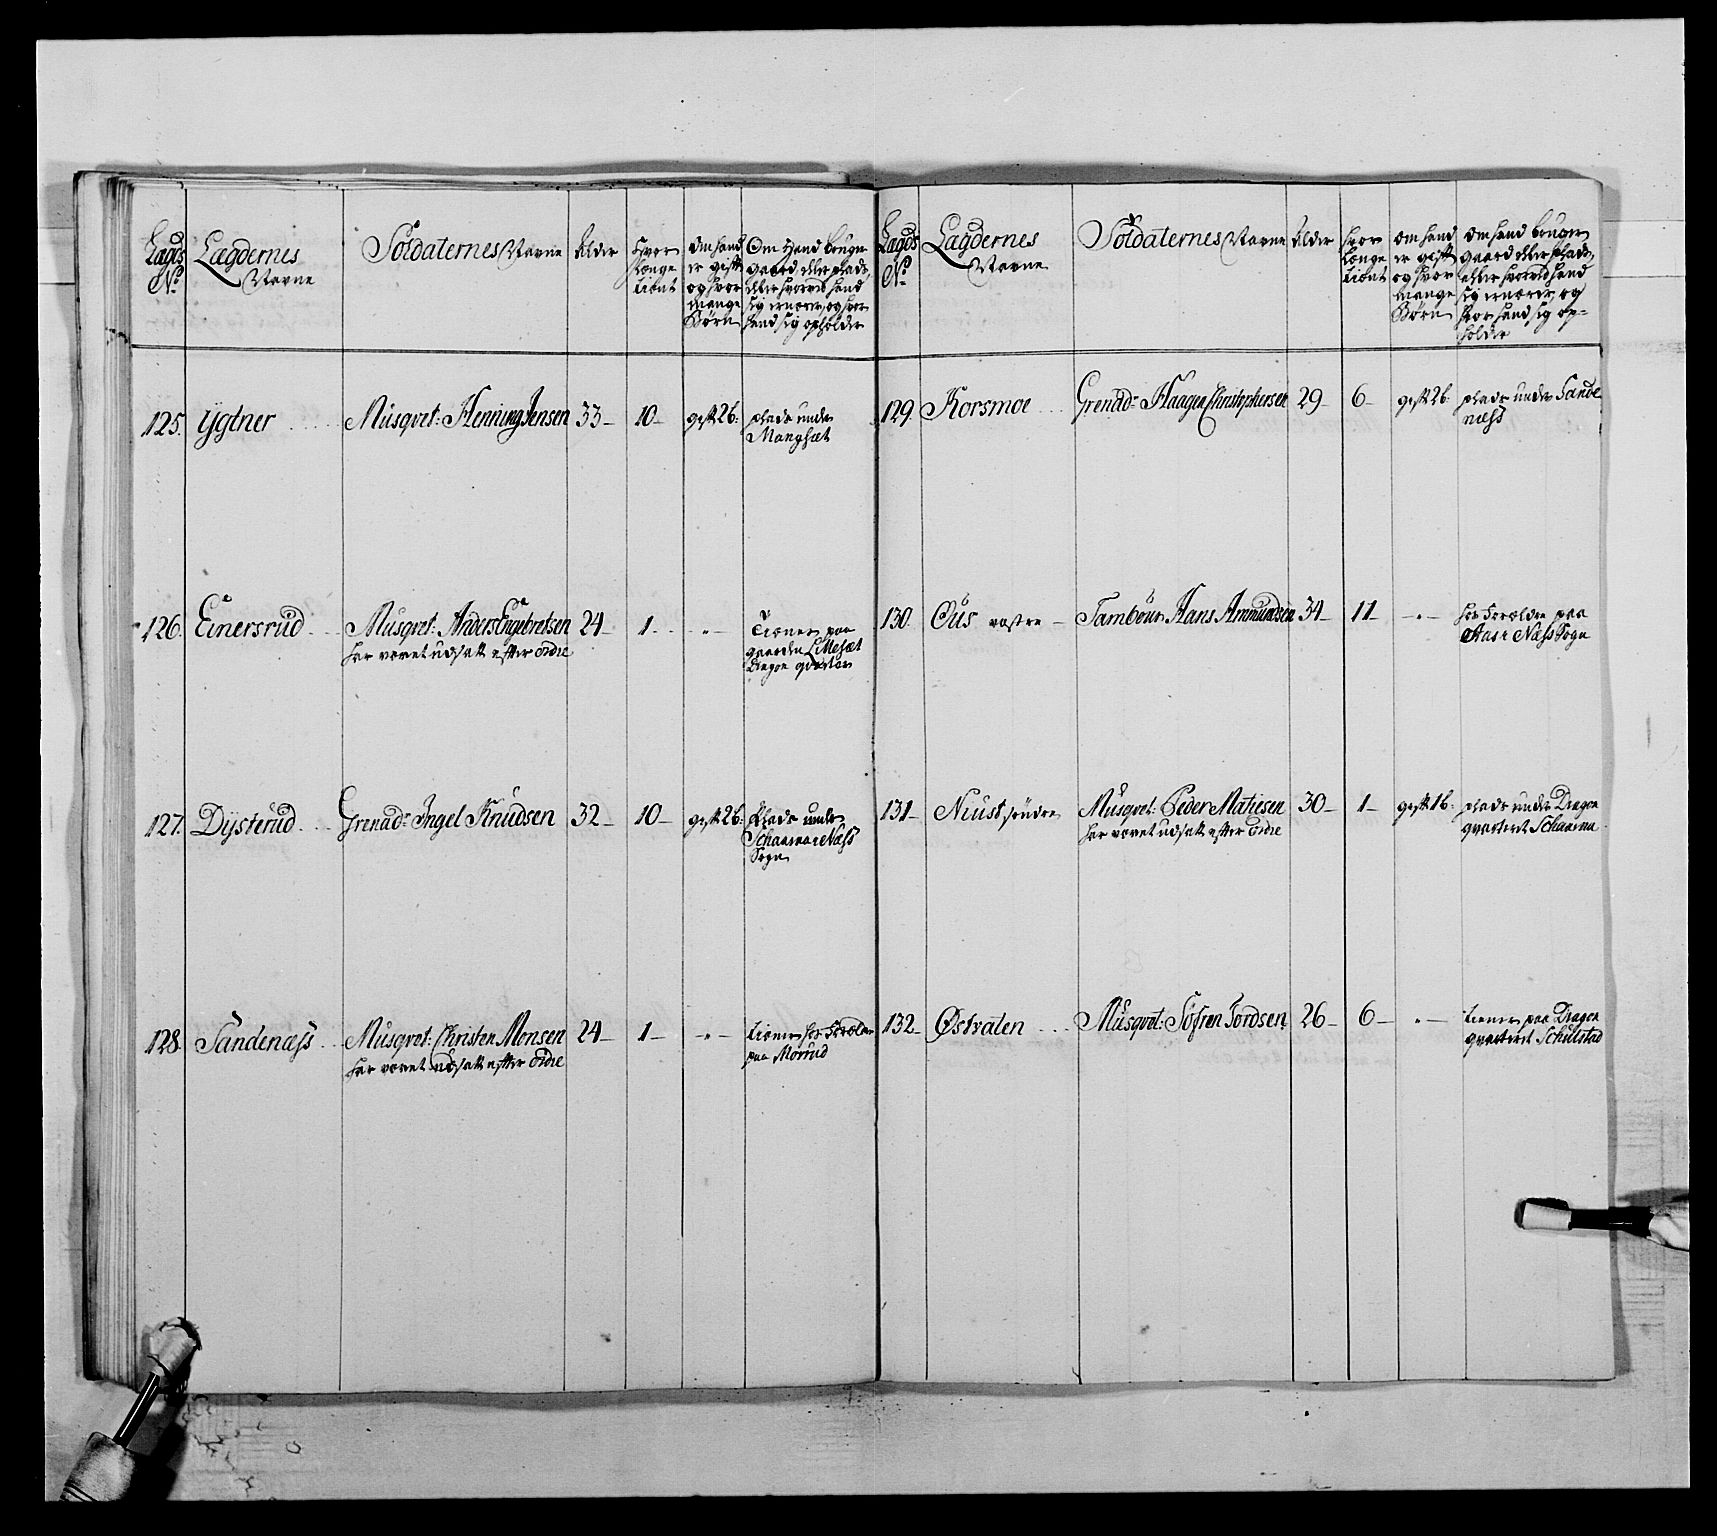 Lægds No
Lægdernes Navne
Soldaternes Navne
Alder
Hvor længe tient
Om hand er gift og hvor mange Børn
Om Hand bruger gaard eller plads, eller hvorved hand sig ernærer, og hvor hand sig opholder
125. Ygtner Musqvet: Henning Jensen 33 10 gift 2b: plads under
Mangset
126. Einersrud Musqvet: Anders Engebretsen 24 1 " tiener paa
har været udsatt efter ordre gaarden Lillesæt
Dragon qvarter
127. Dÿsterud Grenad: Ingel Knudsen 32 10 gift 2b: Plads under
Schaarna i Næss
Sogn
128 Sandenæss Musqvet: Christen Monsen 24 1 " tiener hos Forældre
har været udsatt efter ordre paa Morrud
Lægds No
Lægdernes Navne
Soldaternes Navne
Alder
hvor længe tient
om hand er gift og hvor mange Børn
om hand bruger gaard eller plads, eller hvorved hand sig ernærer og hvor hand sig opholder
129 Korsmoe Grenad: Haagen Christophersen 29 6 gift 2b plads under Sande
næss
130 Ous vestre Tambour Hans Ammundsen 34 11 " hos Forældre paa
Aas i Næss Sogn
131 Niust søndre Musqvet: Peder Matiesen 30 1 gift 1b: plads under Dragon
har været udsatt efter ordre qvarteret Schaarna
132 Østvalen Musqvet: Sofren Tordsen 26 6 " tiener paa Dragon
qvarteret Schulstad